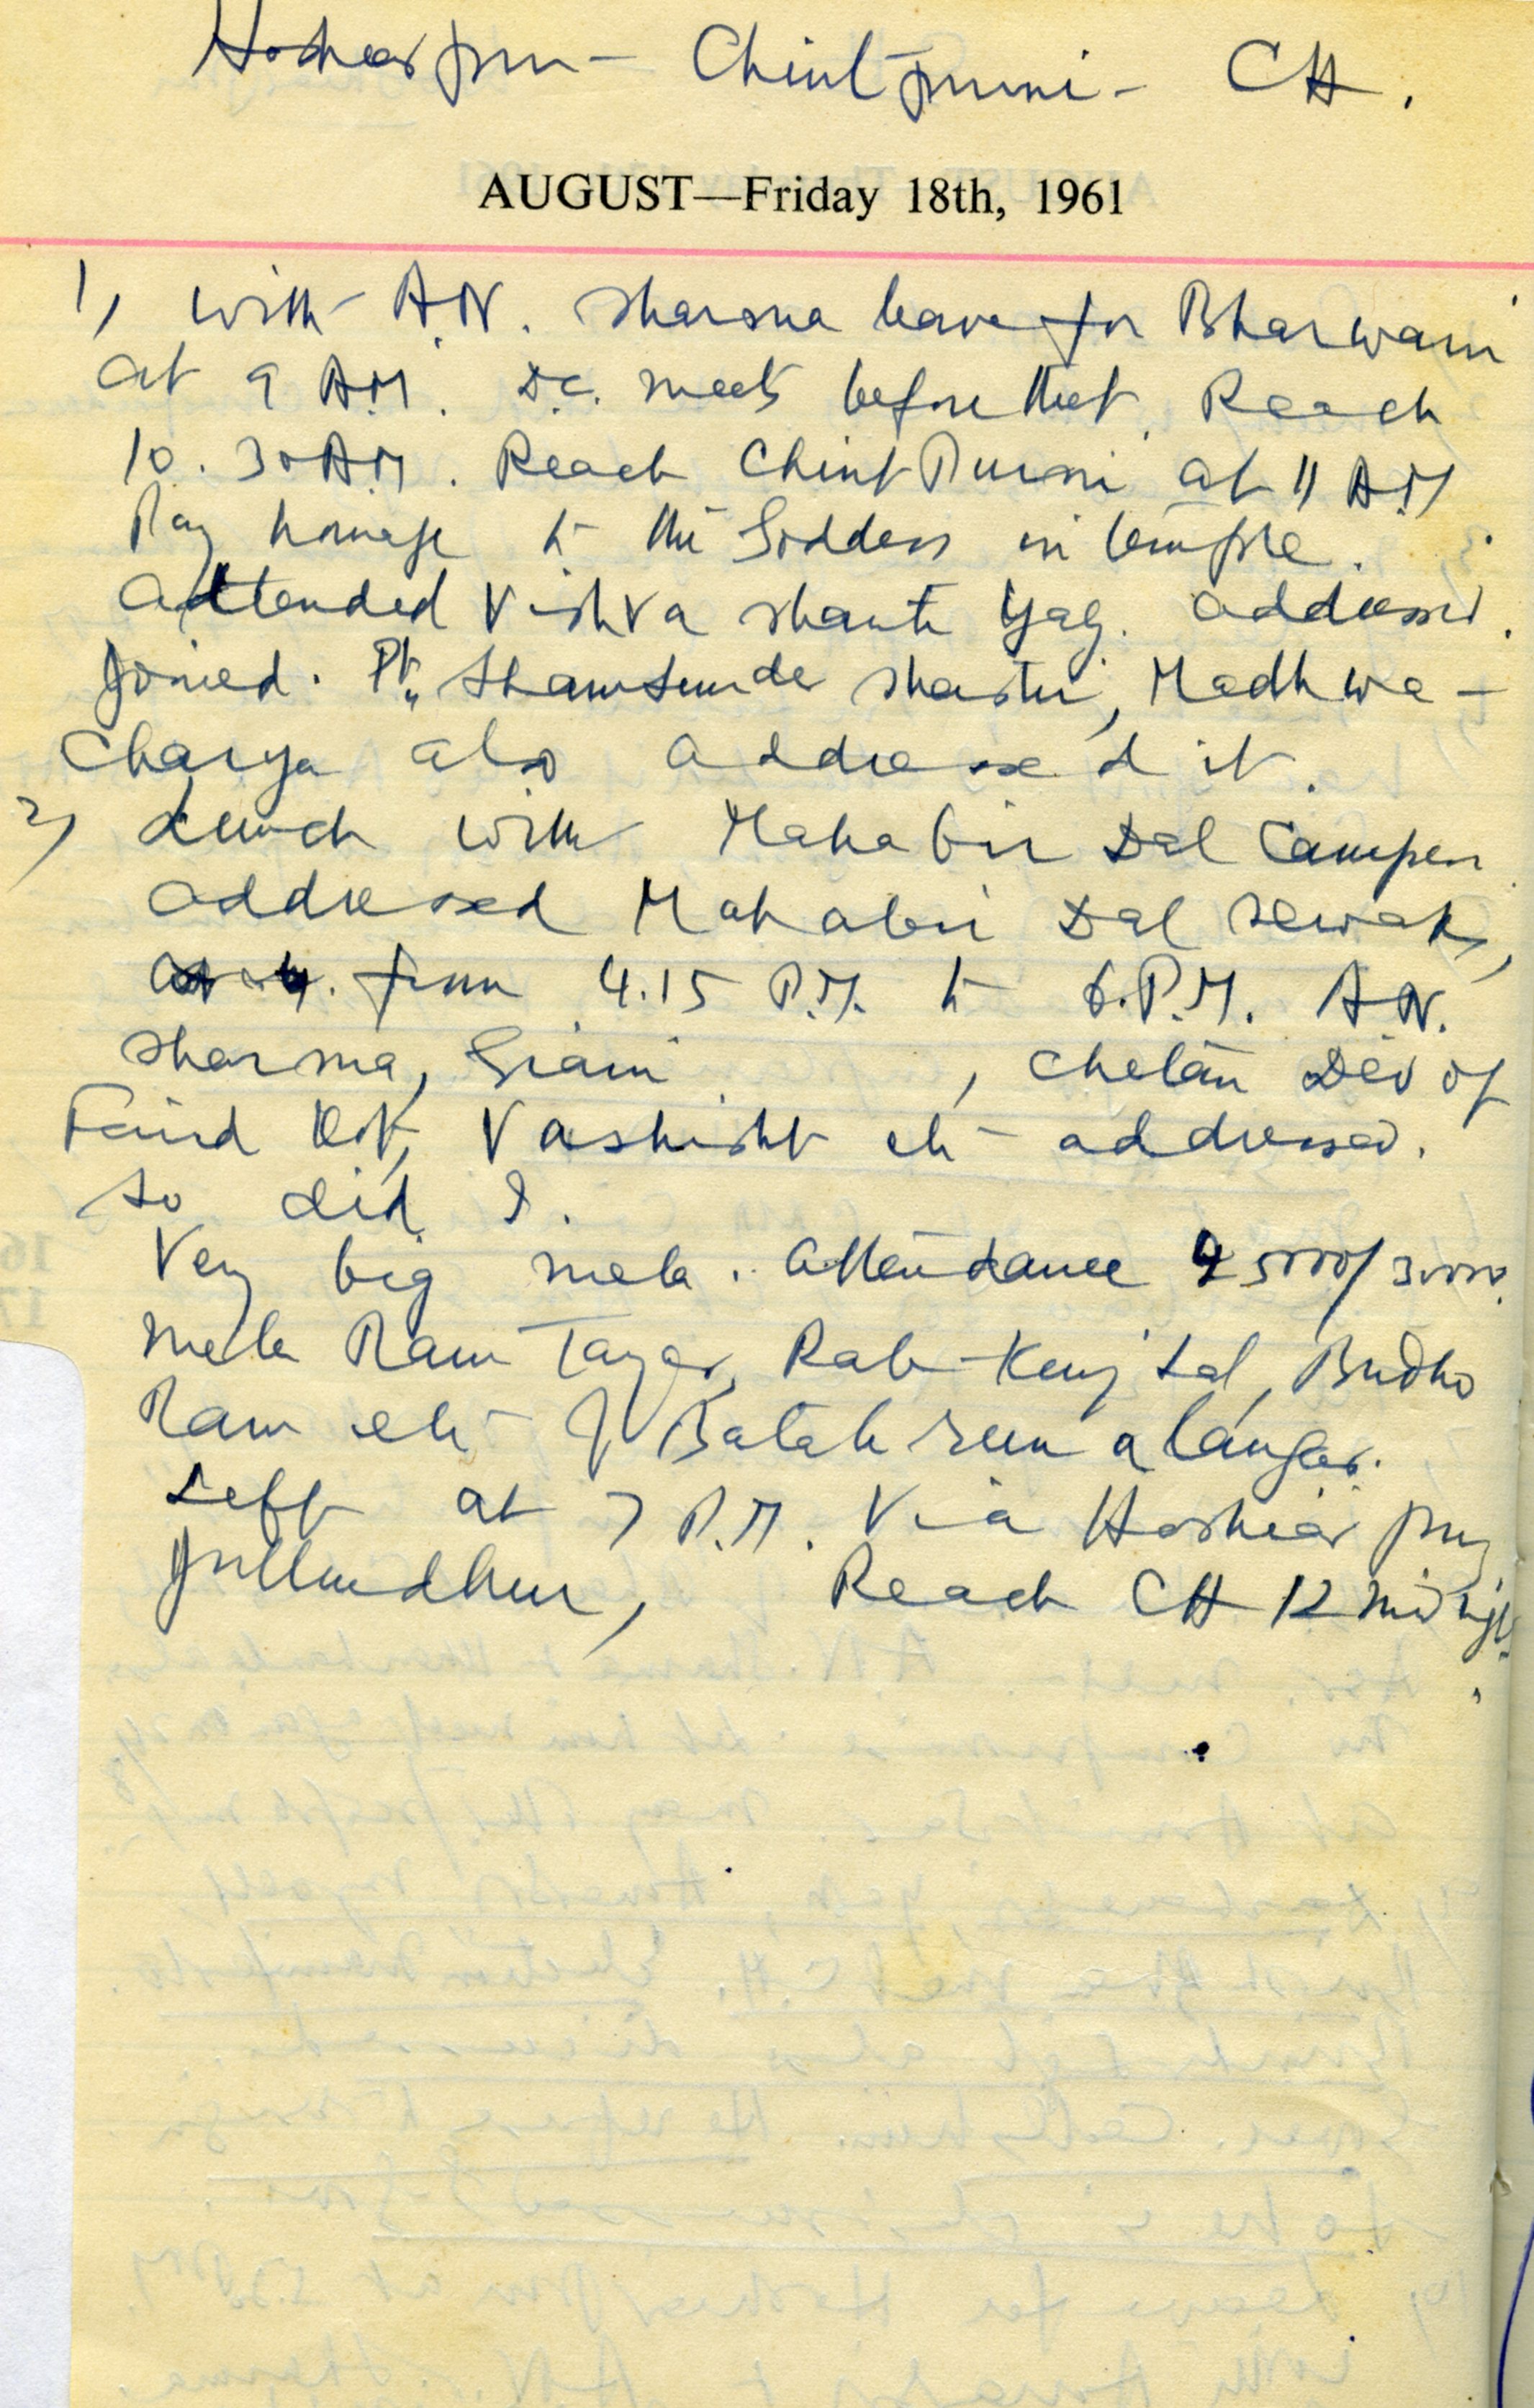 Hoshiarpur - Chintpurni - CH.
AUGUST—Friday 18th, 1961
1) With A.N. Sharma leave for Bharwain
at 9 A.M. D.C. meets before that. Reach
10.30 A.M. Reach Chint Purni at 11 A.M
Pay homage to the Goddess in temple.
Attended Vishva Shanti Yag. addressed.
Joined. Pt. Shamsunder Shastri, Madhwa-
Charya also addressed it.
2) Lunch with Mahabir Dal Campers
addressed Mahabir Dal Sewaks,
from 4.15 P.M. to 6.P.M. A.N.
Sharma, Giani , Chetan Dev of
Farid Kot, Vashisht etc addressed.
So did I.
Very big mela. Attendance 25000/30000.
Mela Ram Tayar, Lal, Budho
Ram etc of Batala run a langar.
Left at 7 P.M. Via Hoshiarpur,
Jullundhur, Reach CH 12 Mid night.